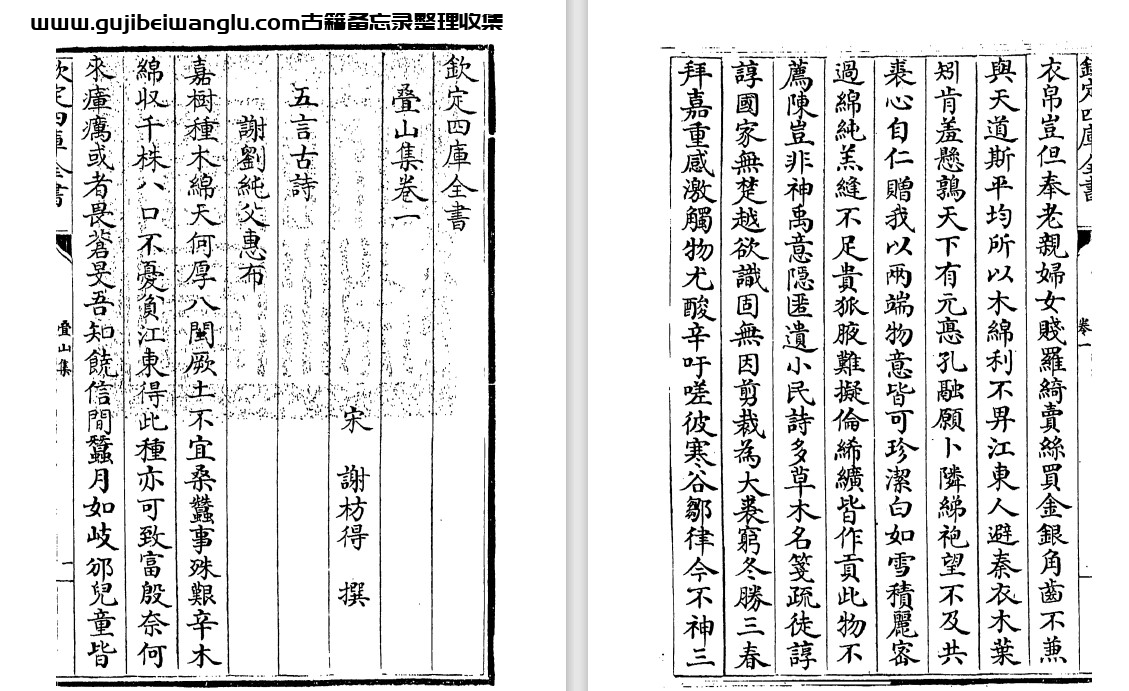 www.gujibeiwanglu.com古籍备忘录整理收集
欽定四庫全書
疊山集卷一
宋 謝枋得 撰
五言古詩
謝劉純父惠布
嘉樹種木綿天何厚八閩厥土不宜桑蠶事殊艱辛木
綿收千株八口不憂貧江東得此種亦可致富殷奈何
來瘴癘或者畏蒼旻吾知饒信間蠶月如岐邠兒童皆
欽定四庫全書
疊山集
衣帛豈但奉老親婦女賤羅綺賣絲買金銀角齒不兼
與天道斯平均所以木綿利不畀江東人避秦衣木葉
矧肯羞懸鶉天下有元悳孔融願卜隣綈袍望不及共
裘心自仁贈我以兩端物意皆可珍潔白如雪積麗密
過綿純羔縫不足貴狐腋難擬倫絺纊皆作貢此物不
薦陳豈非神禹意隱匿遺小民詩多草木名箋疏徒諄
諄國家無楚越欲識固無因剪裁為大裘窮冬勝三春
拜嘉重感激觸物尤酸辛吁嗟彼寒谷鄒律今不神三
欽定四庫全書
卷一